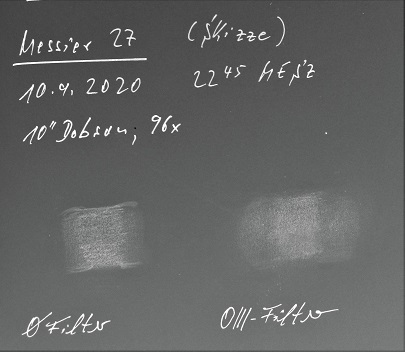 Messier 27 (Skizze)
10.9.2020 22⁴⁵ MESZ
10" Dobson, 96x
Ø Filter OIII-Filter